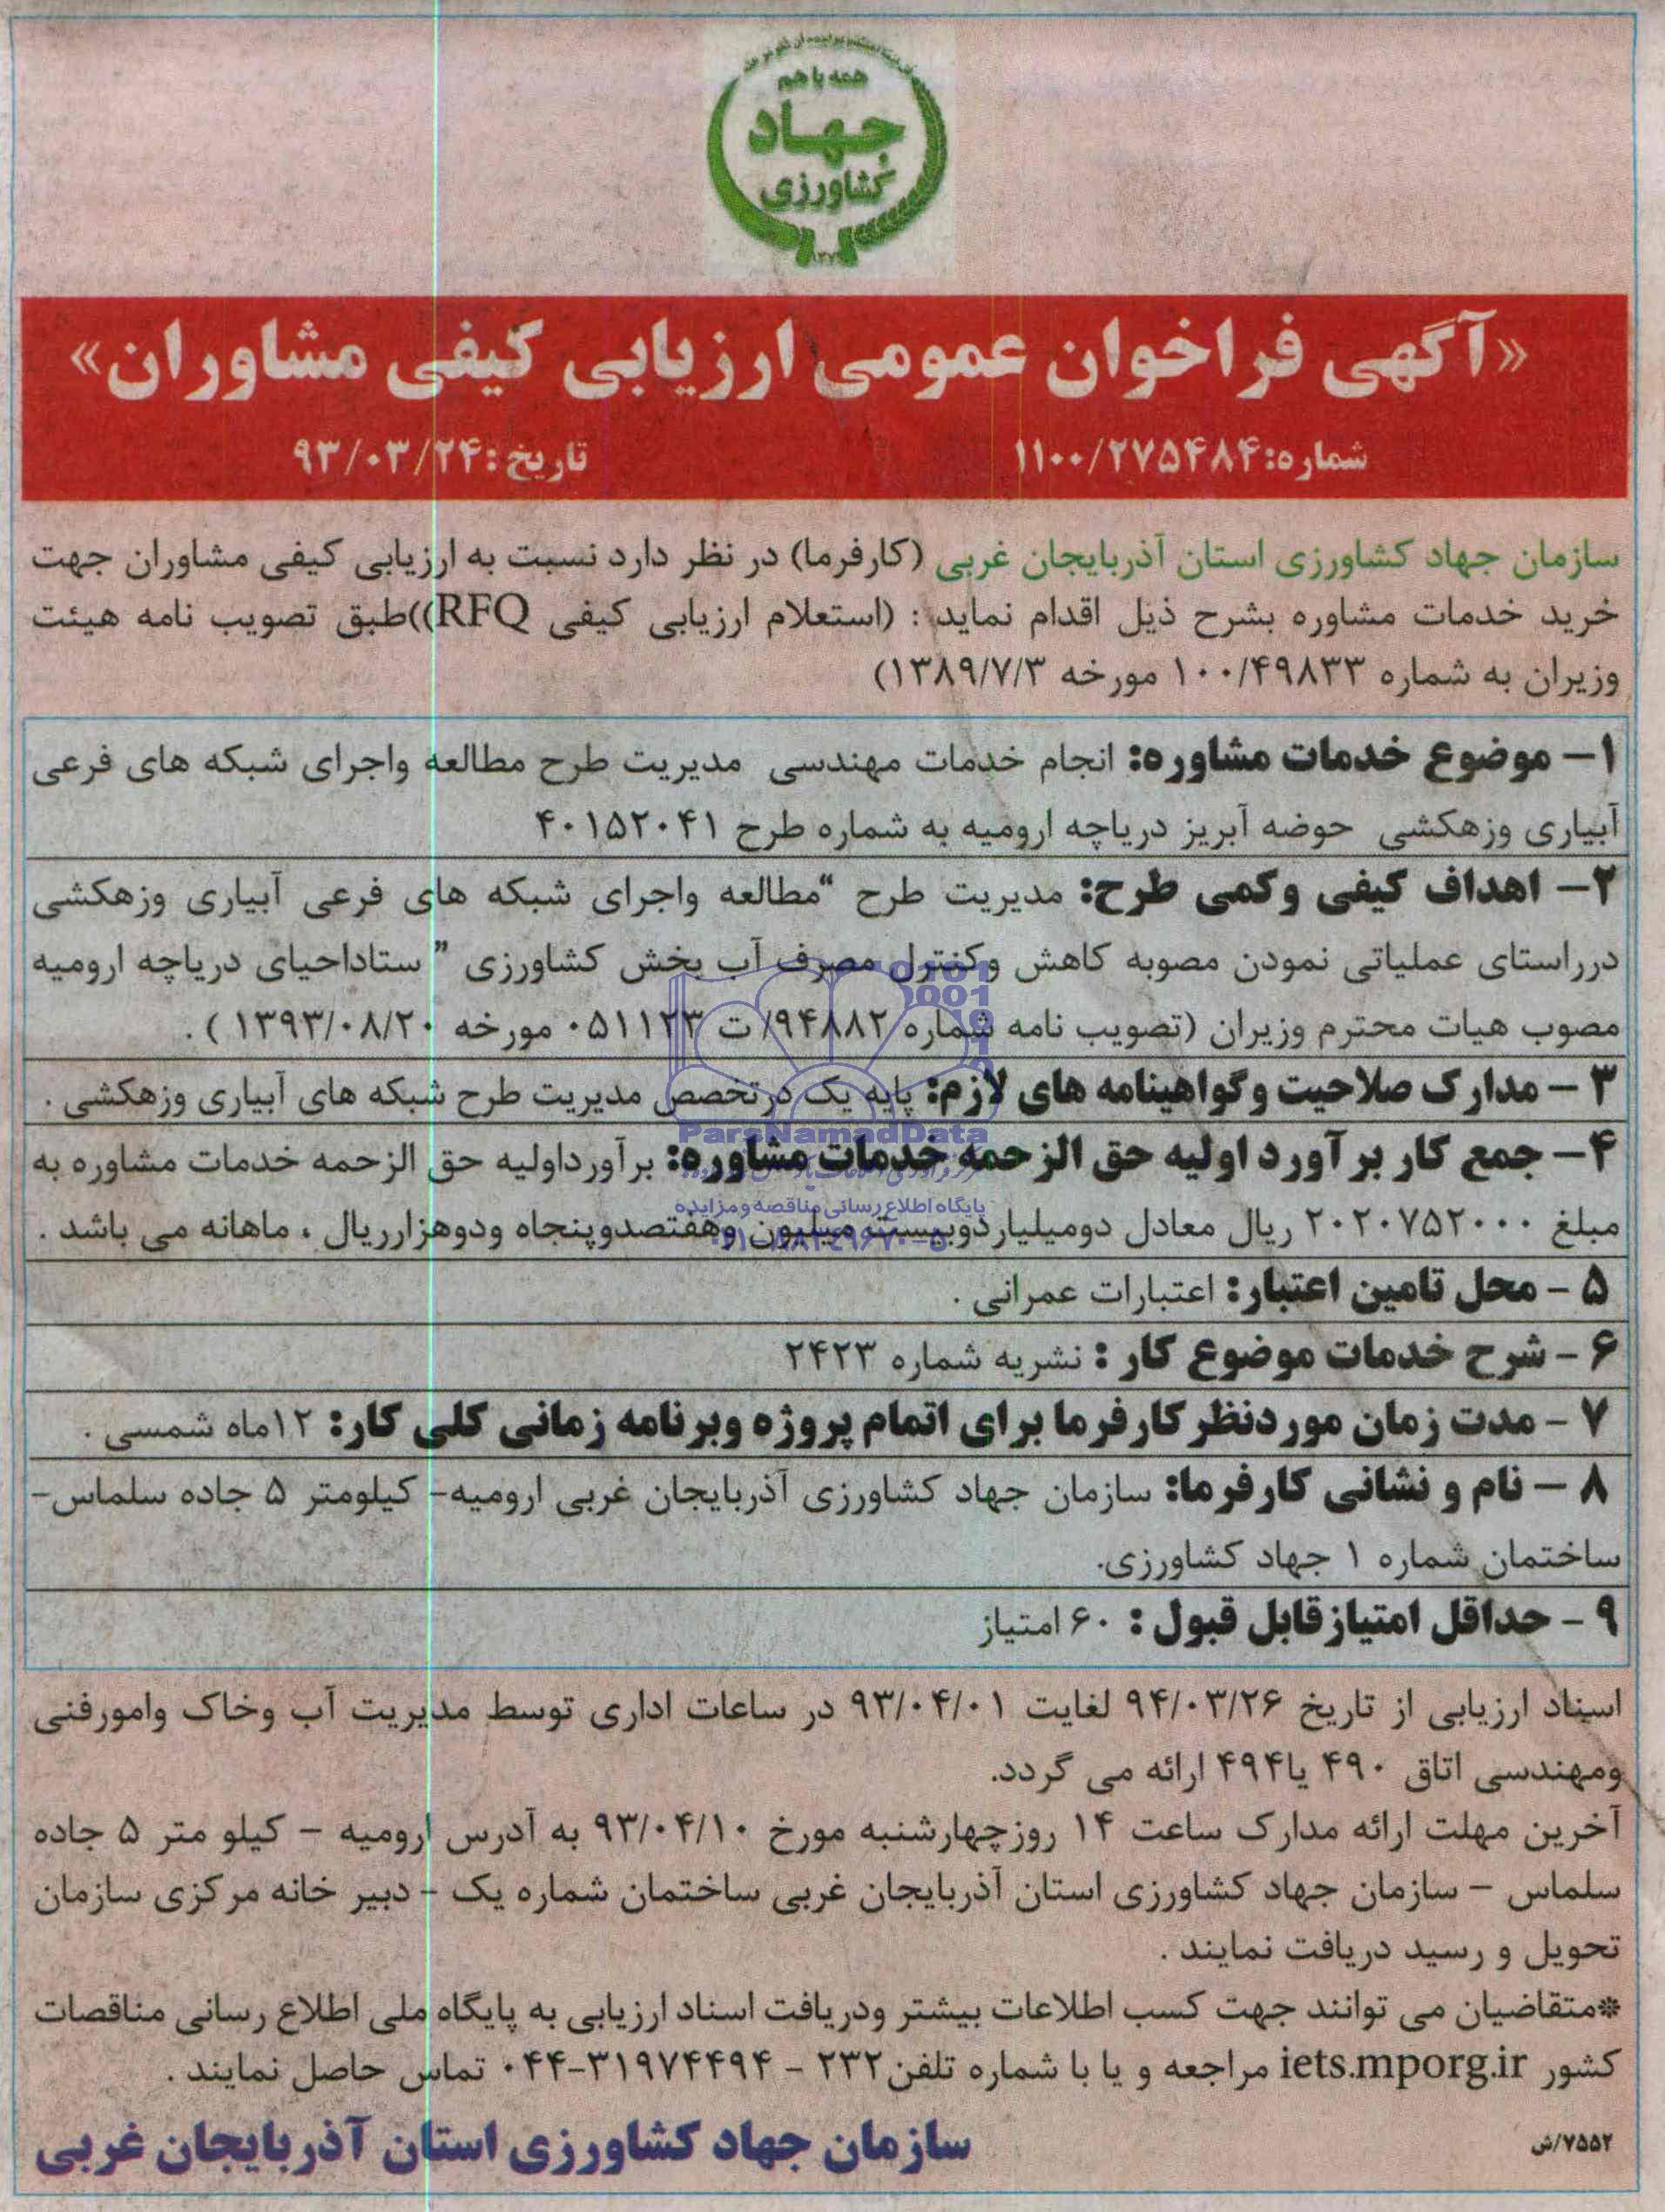 همه با هم
جهاد
کشاورزی
«آگهی فراخوان عمومی ارزیابی کیفی مشاوران»
شماره: ۱۱۰۰/۲۷۵۴۸۴ تاریخ: ۹۳/۰۳/۲۴
سازمان جهاد کشاورزی استان آذربایجان غربی (کارفرما) در نظر دارد نسبت به ارزیابی کیفی مشاوران جهت
خرید خدمات مشاوره بشرح ذیل اقدام نماید: (استعلام ارزیابی کیفی RFQ))طبق تصویب نامه هیئت
وزیران به شماره ۱۰۰/۴۹۸۳۳ مورخه ۱۳۸۹/۷/۳)
۱- موضوع خدمات مشاوره: انجام خدمات مهندسی مدیریت طرح مطالعه واجرای شبکه های فرعی
آبیاری وزهکشی حوضه آبریز دریاچه ارومیه به شماره طرح ۴۰۱۵۲۰۴۱
۲- اهداف کیفی وکمی طرح: مدیریت طرح “مطالعه واجرای شبکه های فرعی آبیاری وزهکشی
درراستای عملیاتی نمودن مصوبه کاهش وکنترل مصرف آب بخش کشاورزی ” ستاداحیای دریاچه ارومیه
مصوب هیات محترم وزیران (تصویب نامه شماره ۹۴۸۸۲/ ت ۰۵۱۱۲۳ مورخه ۱۳۹۳/۰۸/۲۰ ) .
۳ - مدارک صلاحیت وگواهینامه های لازم: پایه یک درتخصص مدیریت طرح شبکه های آبیاری وزهکشی .
ParsNamadData
۴- جمع کار برآورد اولیه حق الزحمه خدمات مشاوره: برآورداولیه حق الزحمه خدمات مشاوره به
پایگاه اطلاع رسانی مناقصه و مزایده
مبلغ ۲۰۲۰۷۵۲۰۰۰ ریال معادل دومیلیاردوبیست میلیون وهفتصدوپنجاه ودوهزارریال ، ماهانه می باشد .
۵ - محل تامین اعتبار: اعتبارات عمرانی .
۶ - شرح خدمات موضوع کار : نشریه شماره ۲۴۲۳
۷ - مدت زمان موردنظر کارفرما برای اتمام پروژه وبرنامه زمانی کلی کار: ۱۲ماه شمسی .
۸ - نام و نشانی کارفرما: سازمان جهاد کشاورزی آذربایجان غربی ارومیه- کیلومتر ۵ جاده سلماس-
ساختمان شماره ۱ جهاد کشاورزی.
۹ - حداقل امتیازقابل قبول : ۶۰ امتیاز
اسناد ارزیابی از تاریخ ۹۴/۰۳/۲۶ لغایت ۹۳/۰۴/۰۱ در ساعات اداری توسط مدیریت آب وخاک وامورفنی
ومهندسی اتاق ۴۹۰ یا۴۹۴ ارائه می گردد.
آخرین مهلت ارائه مدارک ساعت ۱۴ روزچهارشنبه مورخ ۹۳/۰۴/۱۰ به آدرس ارومیه - کیلو متر ۵ جاده
سلماس - سازمان جهاد کشاورزی استان آذربایجان غربی ساختمان شماره یک - دبیر خانه مرکزی سازمان
تحویل و رسید دریافت نمایند .
*متقاضیان می توانند جهت کسب اطلاعات بیشتر ودریافت اسناد ارزیابی به پایگاه ملی اطلاع رسانی مناقصات
کشور iets.mporg.ir مراجعه و یا با شماره تلفن۲۳۲ - ۳۱۹۷۴۴۹۴-۰۴۴ تماس حاصل نمایند .
۷۵۵۲/ش سازمان جهاد کشاورزی استان آذربایجان غربی